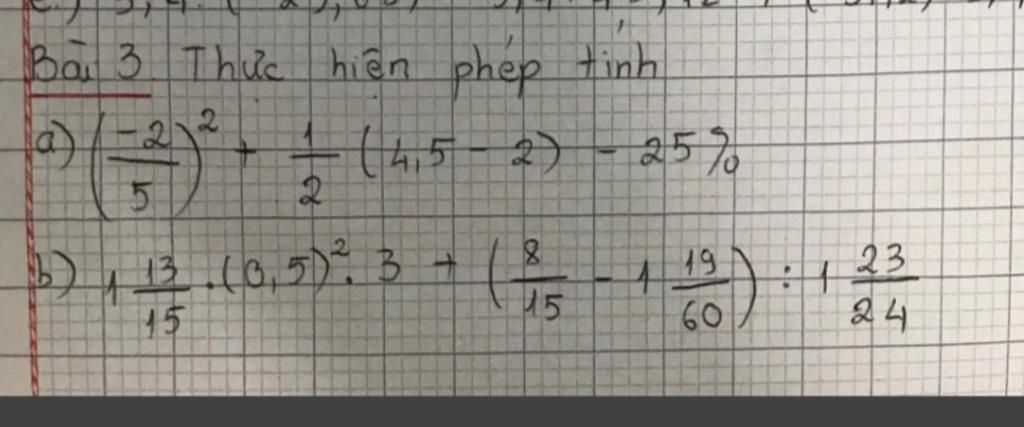 Bài 3 Thực hiện phép tính
a) (-2/5)² + 1/2 (4,5 - 2) - 25%
b) 1 13/15 . (0,5)² . 3 + (8/15 - 1 19/60) : 1 23/24